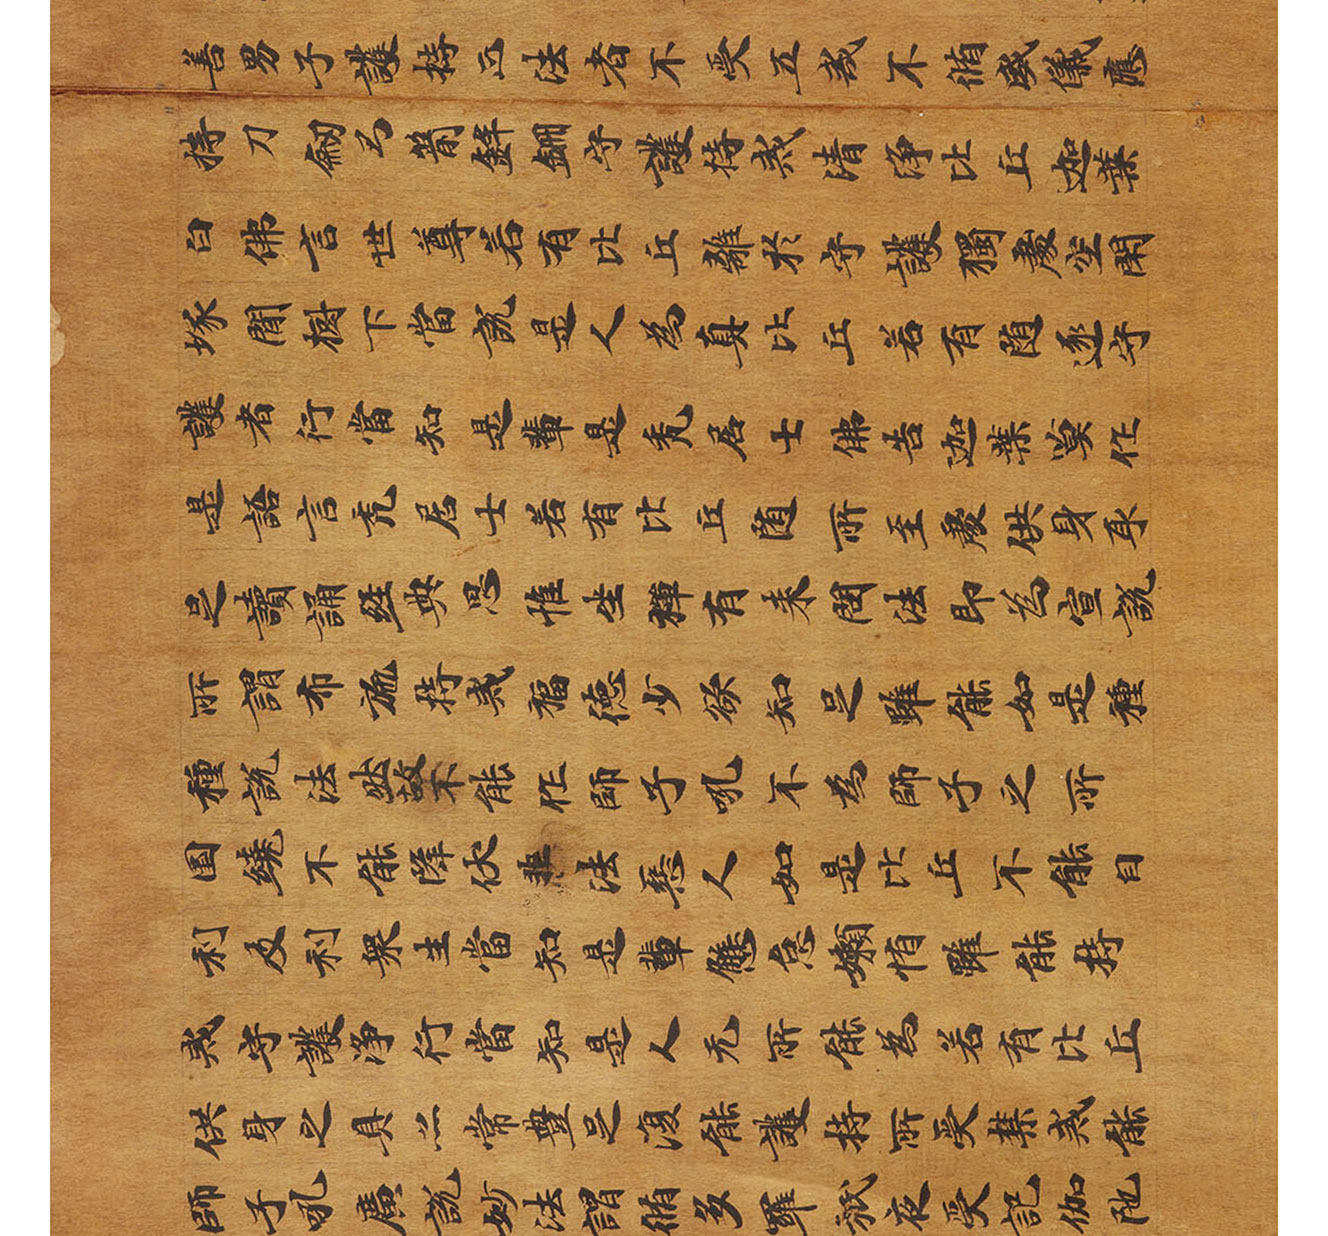 善男子護持正法者不受五戒不脩威儀應
持刀劒弓箭鉾守護持戒清淨比丘迦葉
白佛言世尊若有比丘離於守護獨處空閑
塚間樹下當說是人為真比丘若有随逐守
護者行當知是輩是禿居士佛告迦葉莫作
是語言禿居士若有比丘随所至處供身取
足讀誦經典思惟坐禪有来問法即為宣說
所謂布施持戒福德少欲知足雖能如是種
種說法然故不能作師子吼不為師子之所
圍繞不能降伏非法惡人如是比丘不能自
利及利眾生當知是輩懈怠嬾惰雖能持
戒守護淨行當知是人无所能為若有比丘
供身之具亦常豊足復能護持所受禁戒能
師子吼廣說妙法謂脩多羅祇夜受記伽陀